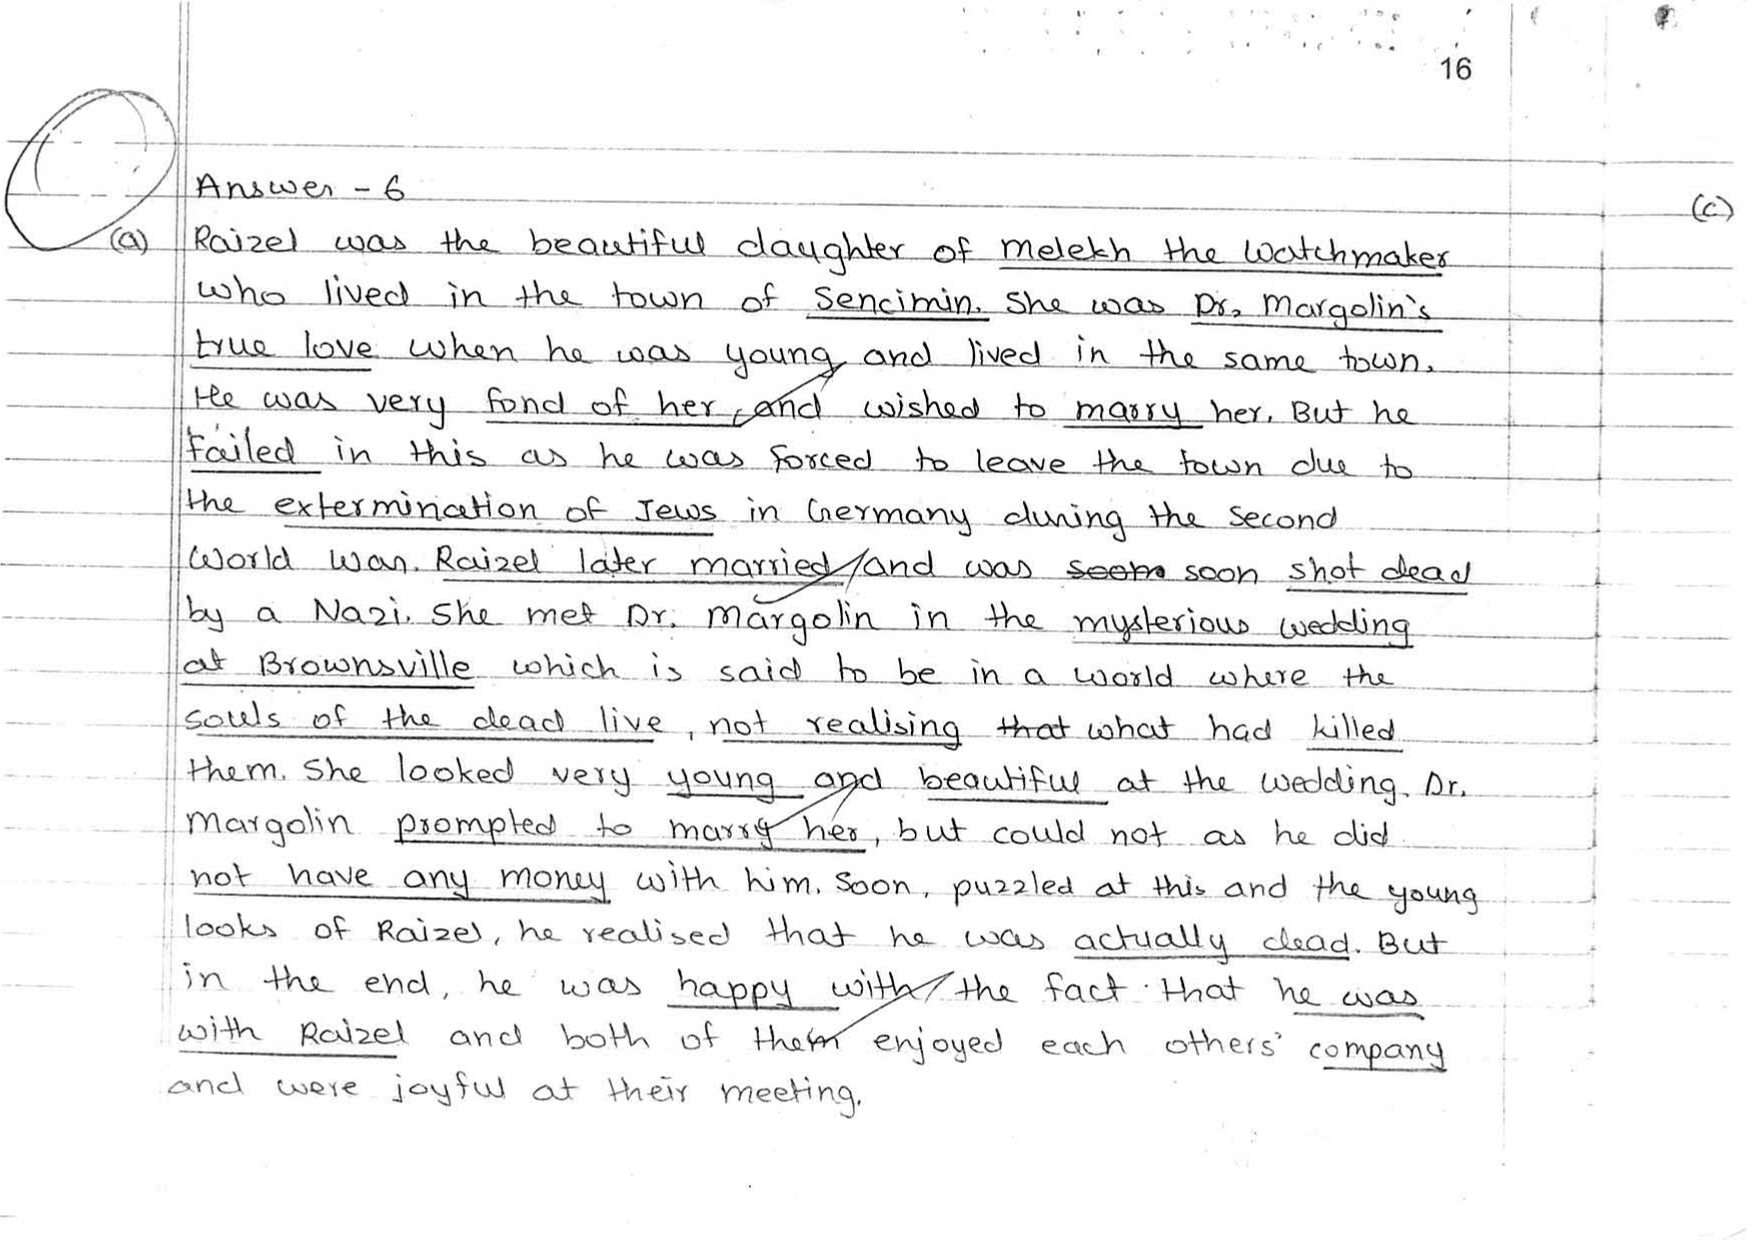 16
Answer - 6
(c)
(a) Raizel was the beautiful daughter of Melekh the Watchmaker
who lived in the town of Sencimin. She was Dr. Margolin's
true love when he was young and lived in the same town.
He was very fond of her, and wished to marry her. But he
failed in this as he was forced to leave the town due to
the extermination of Jews in Germany during the Second
World War. Raizel later married and was seem soon shot dead
by a Nazi. She met Dr. Margolin in the mysterious wedding
at Brownsville which is said to be in a world where the
souls of the dead live, not realising that what had killed
them. She looked very young and beautiful at the wedding. Dr.
Margolin prompted to marry her, but could not as he did
not have any money with him. Soon, puzzled at this and the young
looks of Raizel, he realised that he was actually dead. But
in the end, he was happy with the fact that he was
with Raizel and both of them enjoyed each others' company
and were joyful at their meeting.